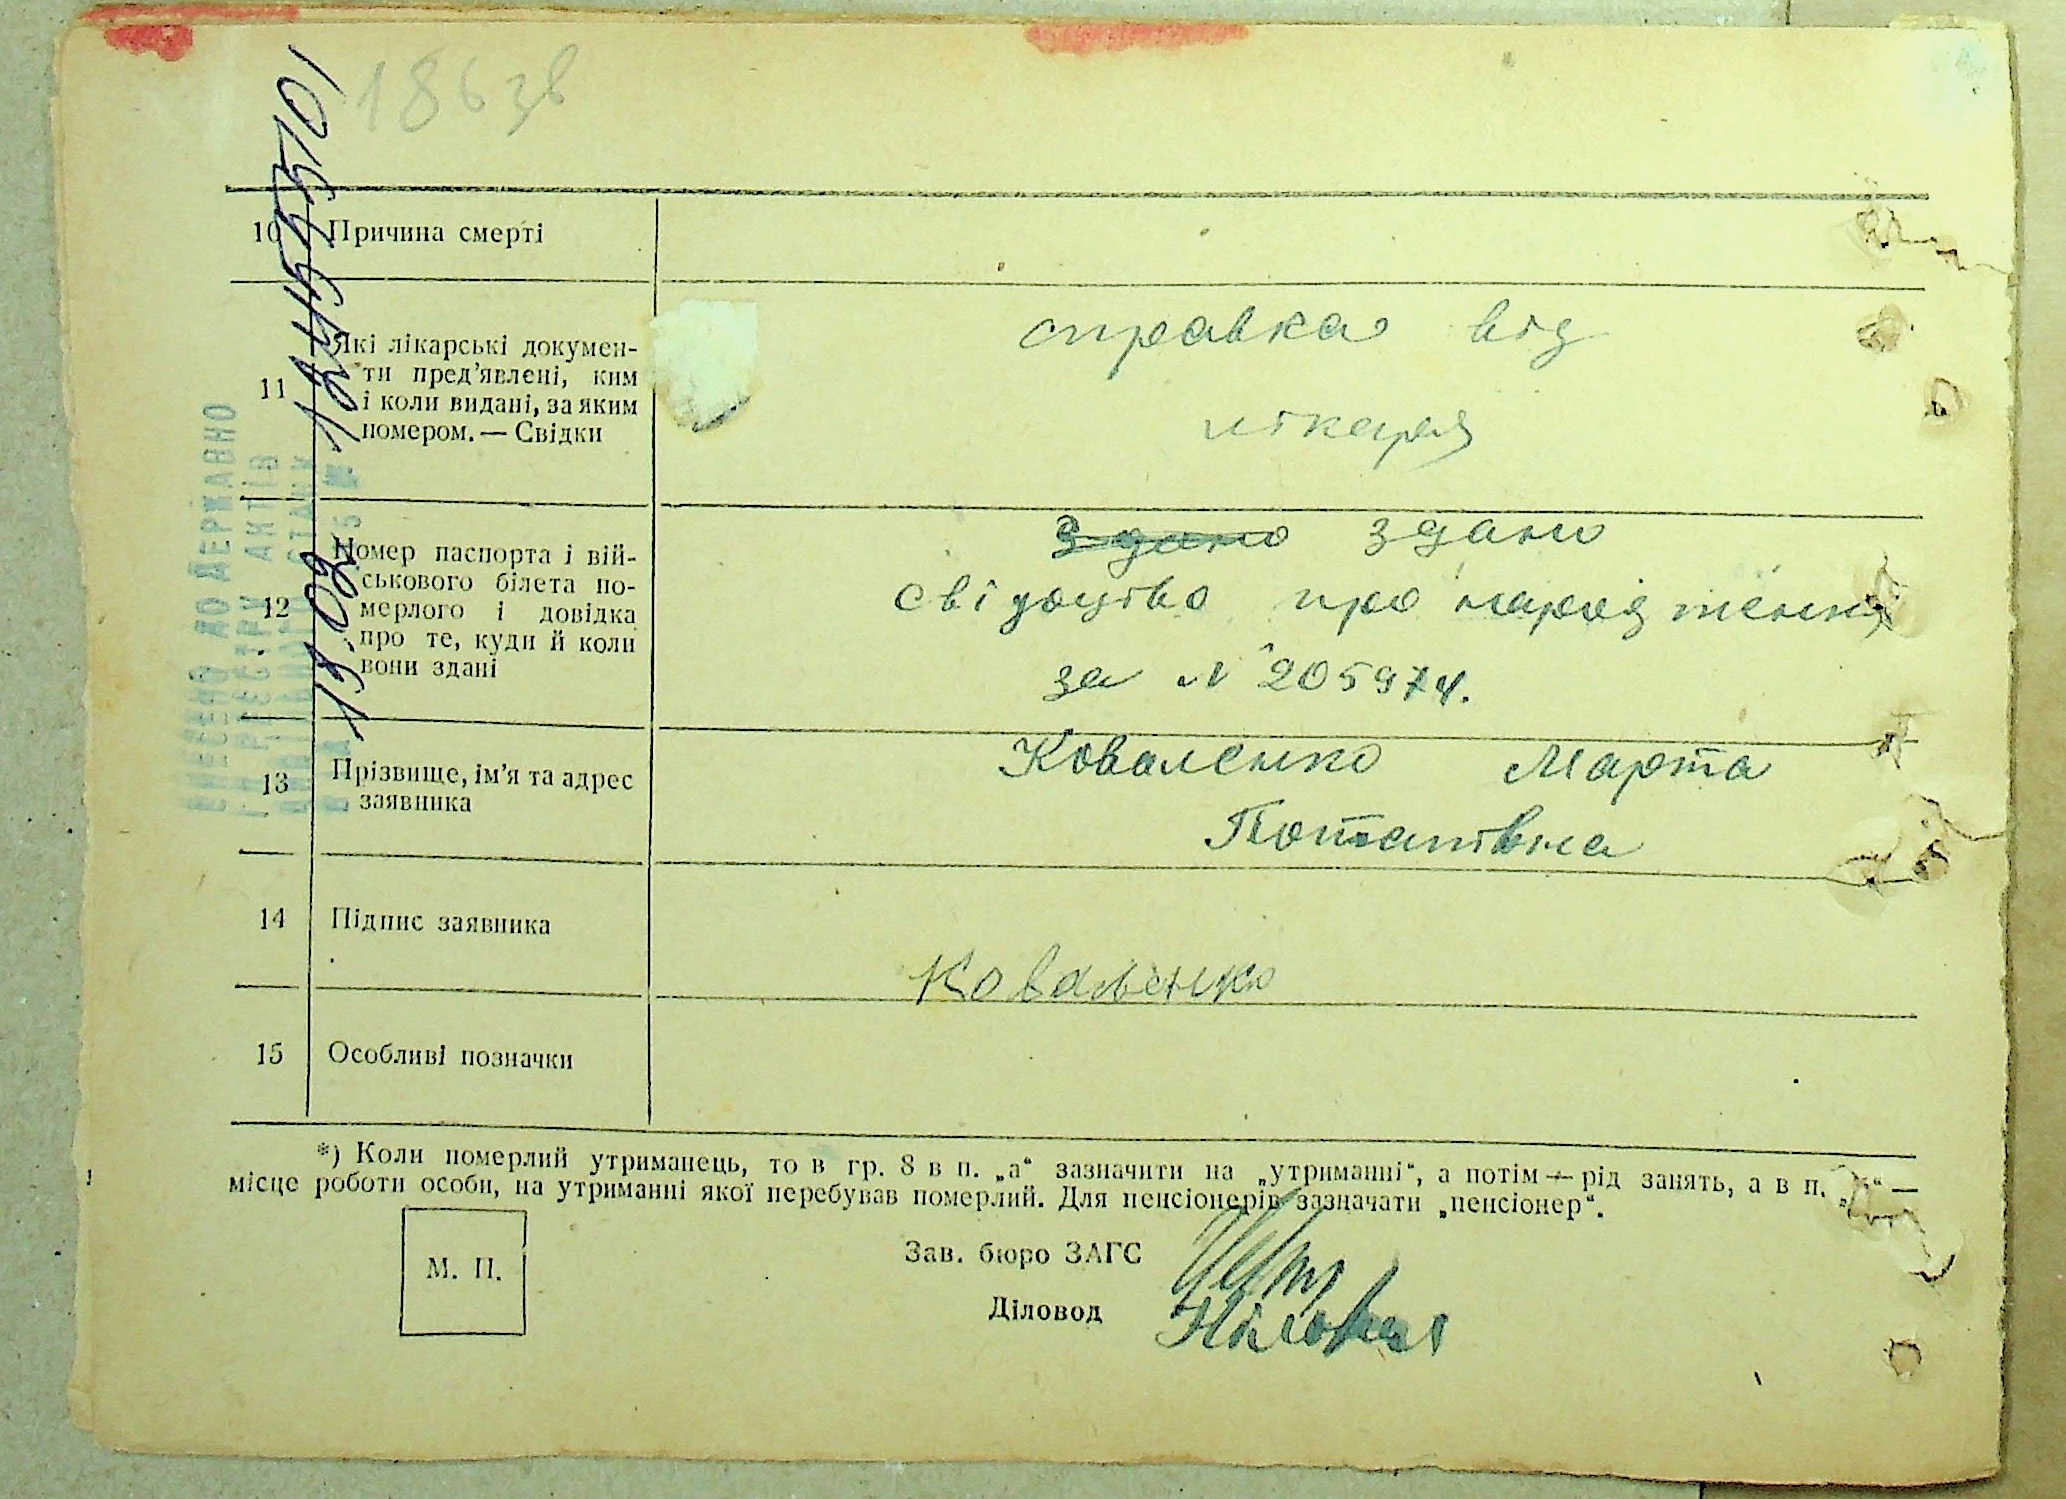 186 зв
1245245101
ВНЕСЕНО ДО ДЕРЖАВНО
ГО РЕЄСТРУ АКТІВ
13.02.
10 Причина смерті
11 Які лікарські докумен-
ти пред’явлені, ким
і коли видані, за яким
номером. — Свідки
справка від
лікаря
12 Номер паспорта і вій-
ськового білета по-
мерлого і довідка
про те, куди й коли
вони здані
здано здано
свідоцтво про народження
за № 205974.
13 Прізвище, ім’я та адрес
заявника
Коваленко Марта
Потапівна
14 Підпис заявника
Коваленко
15 Особливі позначки
*) Коли померлий утриманець, то в гр. 8 в п. „а“ зазначити на „утриманні“, а потім — рід занять, а в п. —
місце роботи особи, на утриманні якої перебував померлий. Для пенсіонерів зазначати „пенсіонер“.
М. П.
Зав. бюро ЗАГС
Діловод